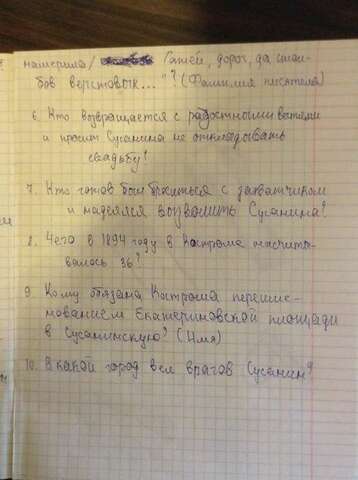 намерила/ Гатей, дорог, да стол-
бов верстовых..."? (Фамилия писателя)
6. Кто возвращается с радостными вестями
и просит Сусанина не откладывать
свадьбу?
7. Кто готов был биться с захватчиком
и надеялся вызволить Сусанина?
8. Чего в 1894 году в Костроме насчиты-
валось 36?
9. Кому обязана Кострома переиме-
нованием Екатериновской площади
в Сусанинскую? (Имя)
10. В какой город вел врагов Сусанин?